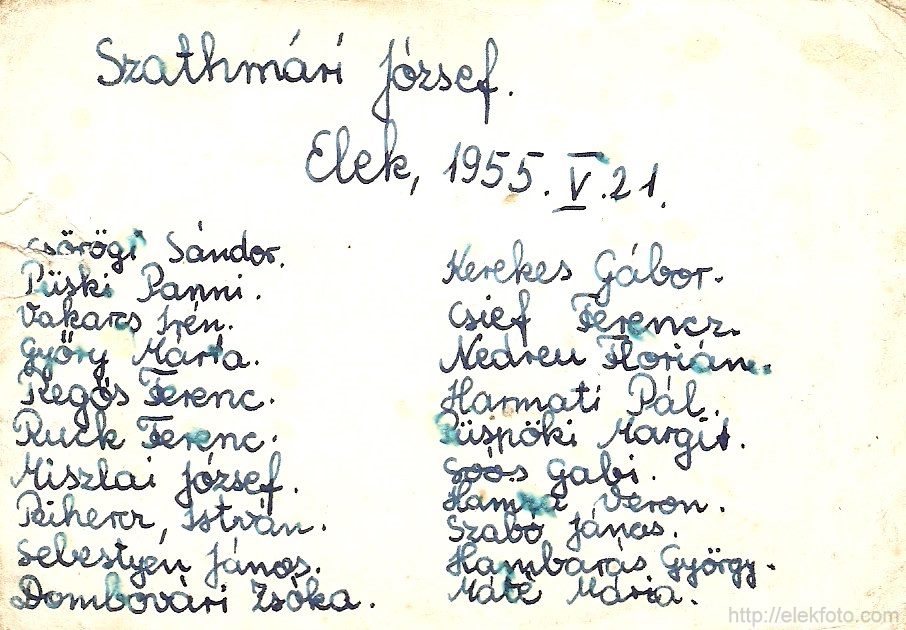 Szathmári József.
Elek, 1955. V. 21.
Csörögi Sándor.
Püski Panni.
Vakarcs Irén.
Győry Márta.
Regős Ferenc.
Ruck Ferenc.
Miszlai József.
Riherr, István.
Sebestyén János.
Dombovári Zsóka.
Kerekes Gábor.
Csief Ferencz.
Nedreu Florián.
Harmati Pál.
Püspöki Margit.
Soós Gabi.
Hamza Veron.
Szabó János.
Hambarás György.
Máté Mária.
http://elekfoto.com